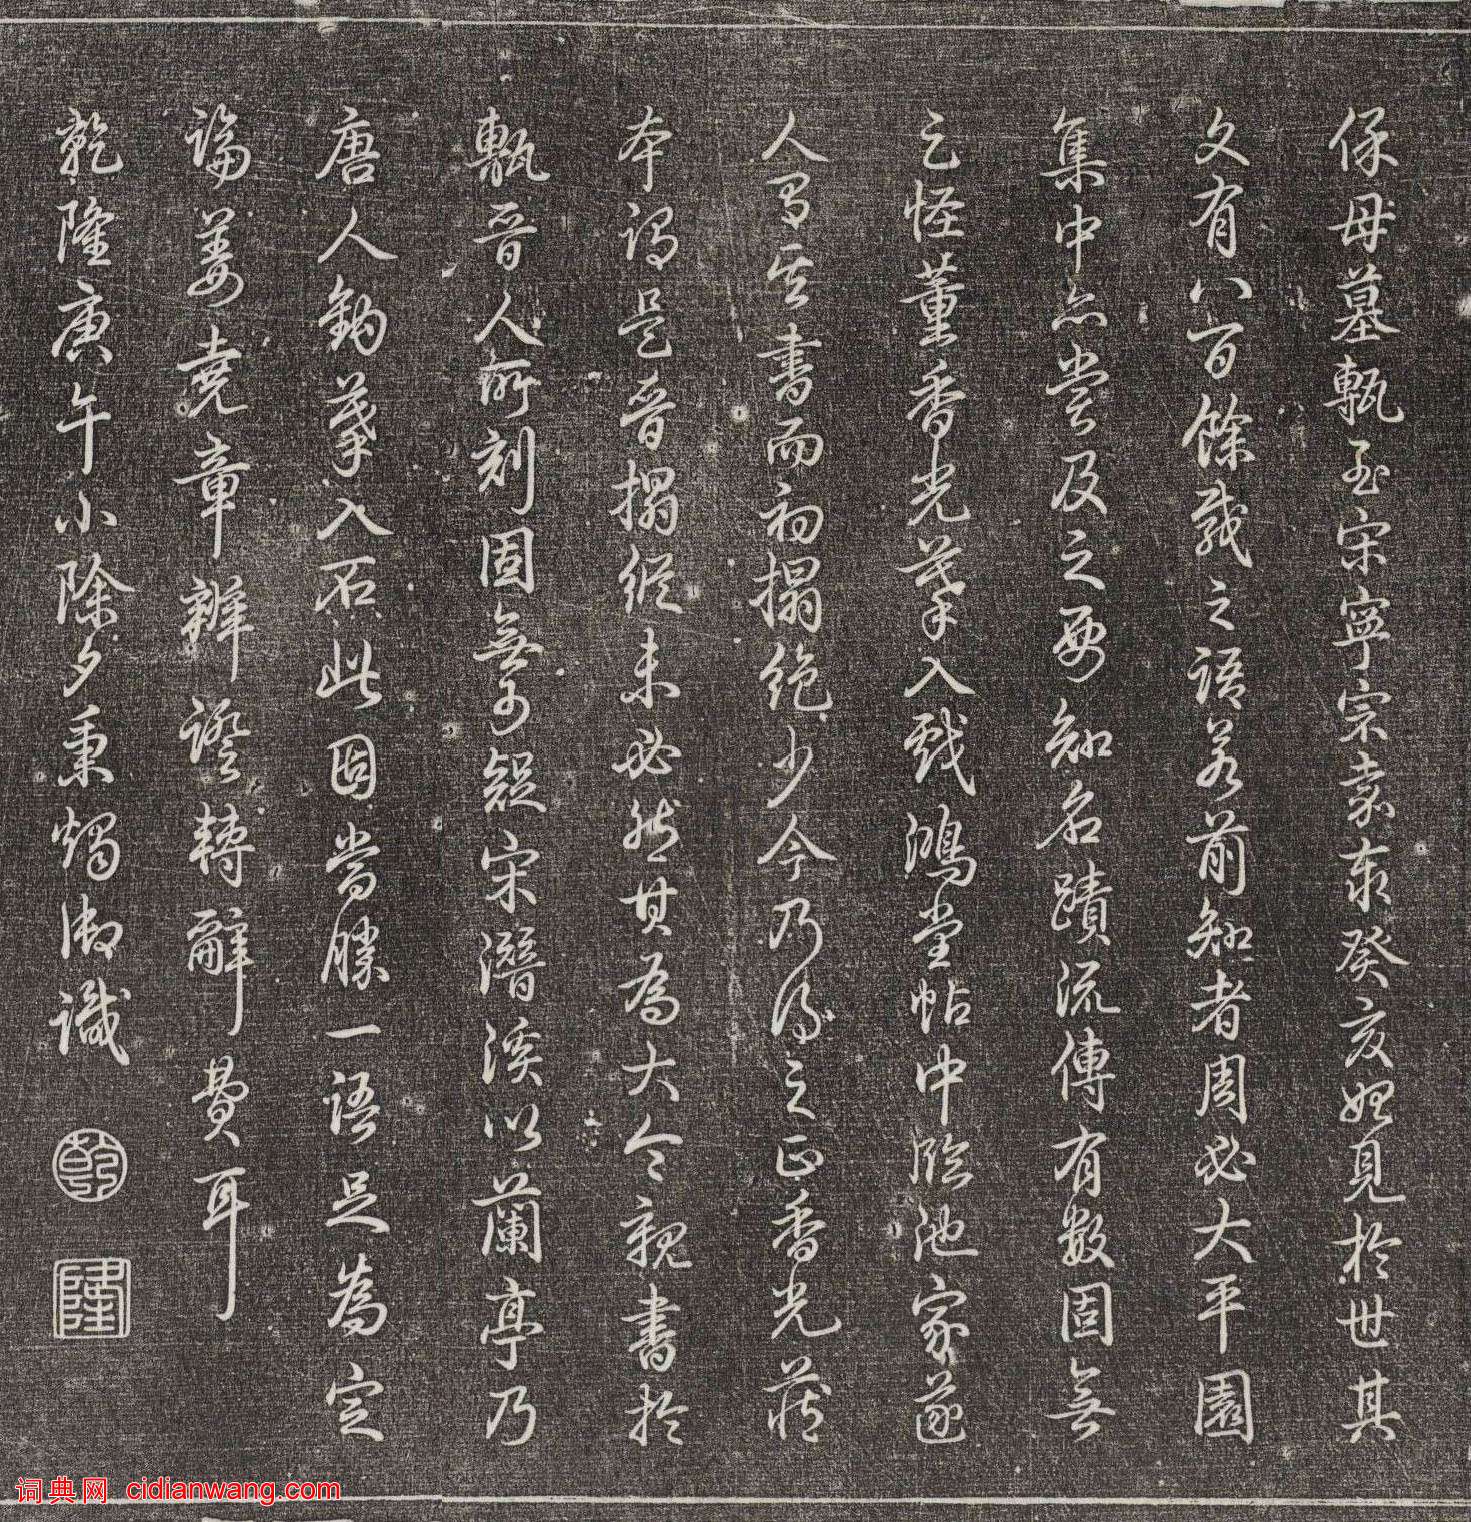 保母墓甎至宋寧宗嘉泰癸亥始見於世其
文有八百餘載之語若前知者周必大平園
集中亦嘗及之要知名蹟流傳有數固無
足怪董香光摹入戲鴻堂帖中臨池家遂
人間其書而初搨絕少今乃得之正香光藏
本謂是晉搨縱未必然其為大令親書於
甎晉人所刻固無可疑宋潛溪以蘭亭乃
唐人鉤摹入石此固當勝一語足為定
論姜堯章辨證轉辭費耳
乾隆庚午小除夕秉燭御識
乾
隆
词典网 cidianwang.com